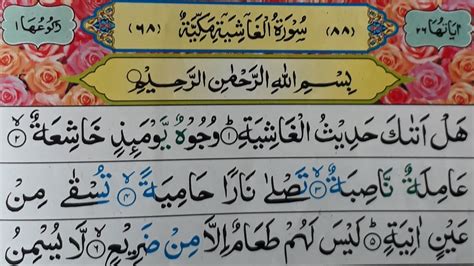 اٰيَاتُهَا ٢٦ (٨٨) سُوْرَةُ الْغَاشِيَةِ مَكِّيَّةٌ (٦٨) رُكُوْعُهَا ١
بِسْمِ اللّٰهِ الرَّحْمٰنِ الرَّحِيْمِ
هَلْ اَتٰىكَ حَدِيْثُ الْغَاشِيَةِ ۝١ وُجُوْهٌ يَّوْمَئِذٍ خَاشِعَةٌ ۝٢
عَامِلَةٌ نَّاصِبَةٌ ۝٣ تَصْلٰى نَارًا حَامِيَةً ۝٤ تُسْقٰى مِنْ
عَيْنٍ اٰنِيَةٍ ۝٥ لَيْسَ لَهُمْ طَعَامٌ اِلَّا مِنْ ضَرِيْعٍ ۝٦ لَّا يُسْمِنُ